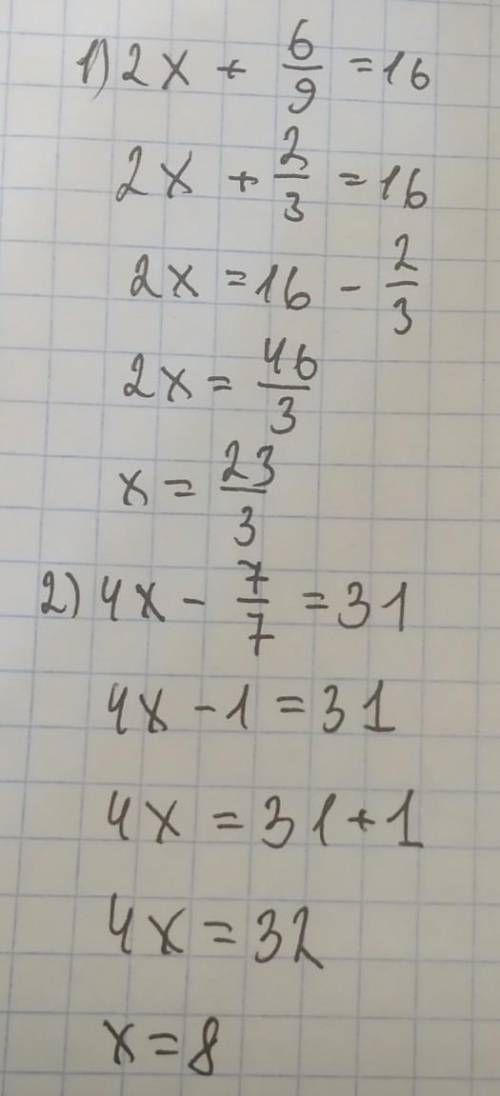 1) 2x + 6/9 = 16
2x + 2/3 = 16
2x = 16 - 2/3
2x = 46/3
x = 23/3
2) 4x - 7/7 = 31
4x - 1 = 31
4x = 31 + 1
4x = 32
x = 8